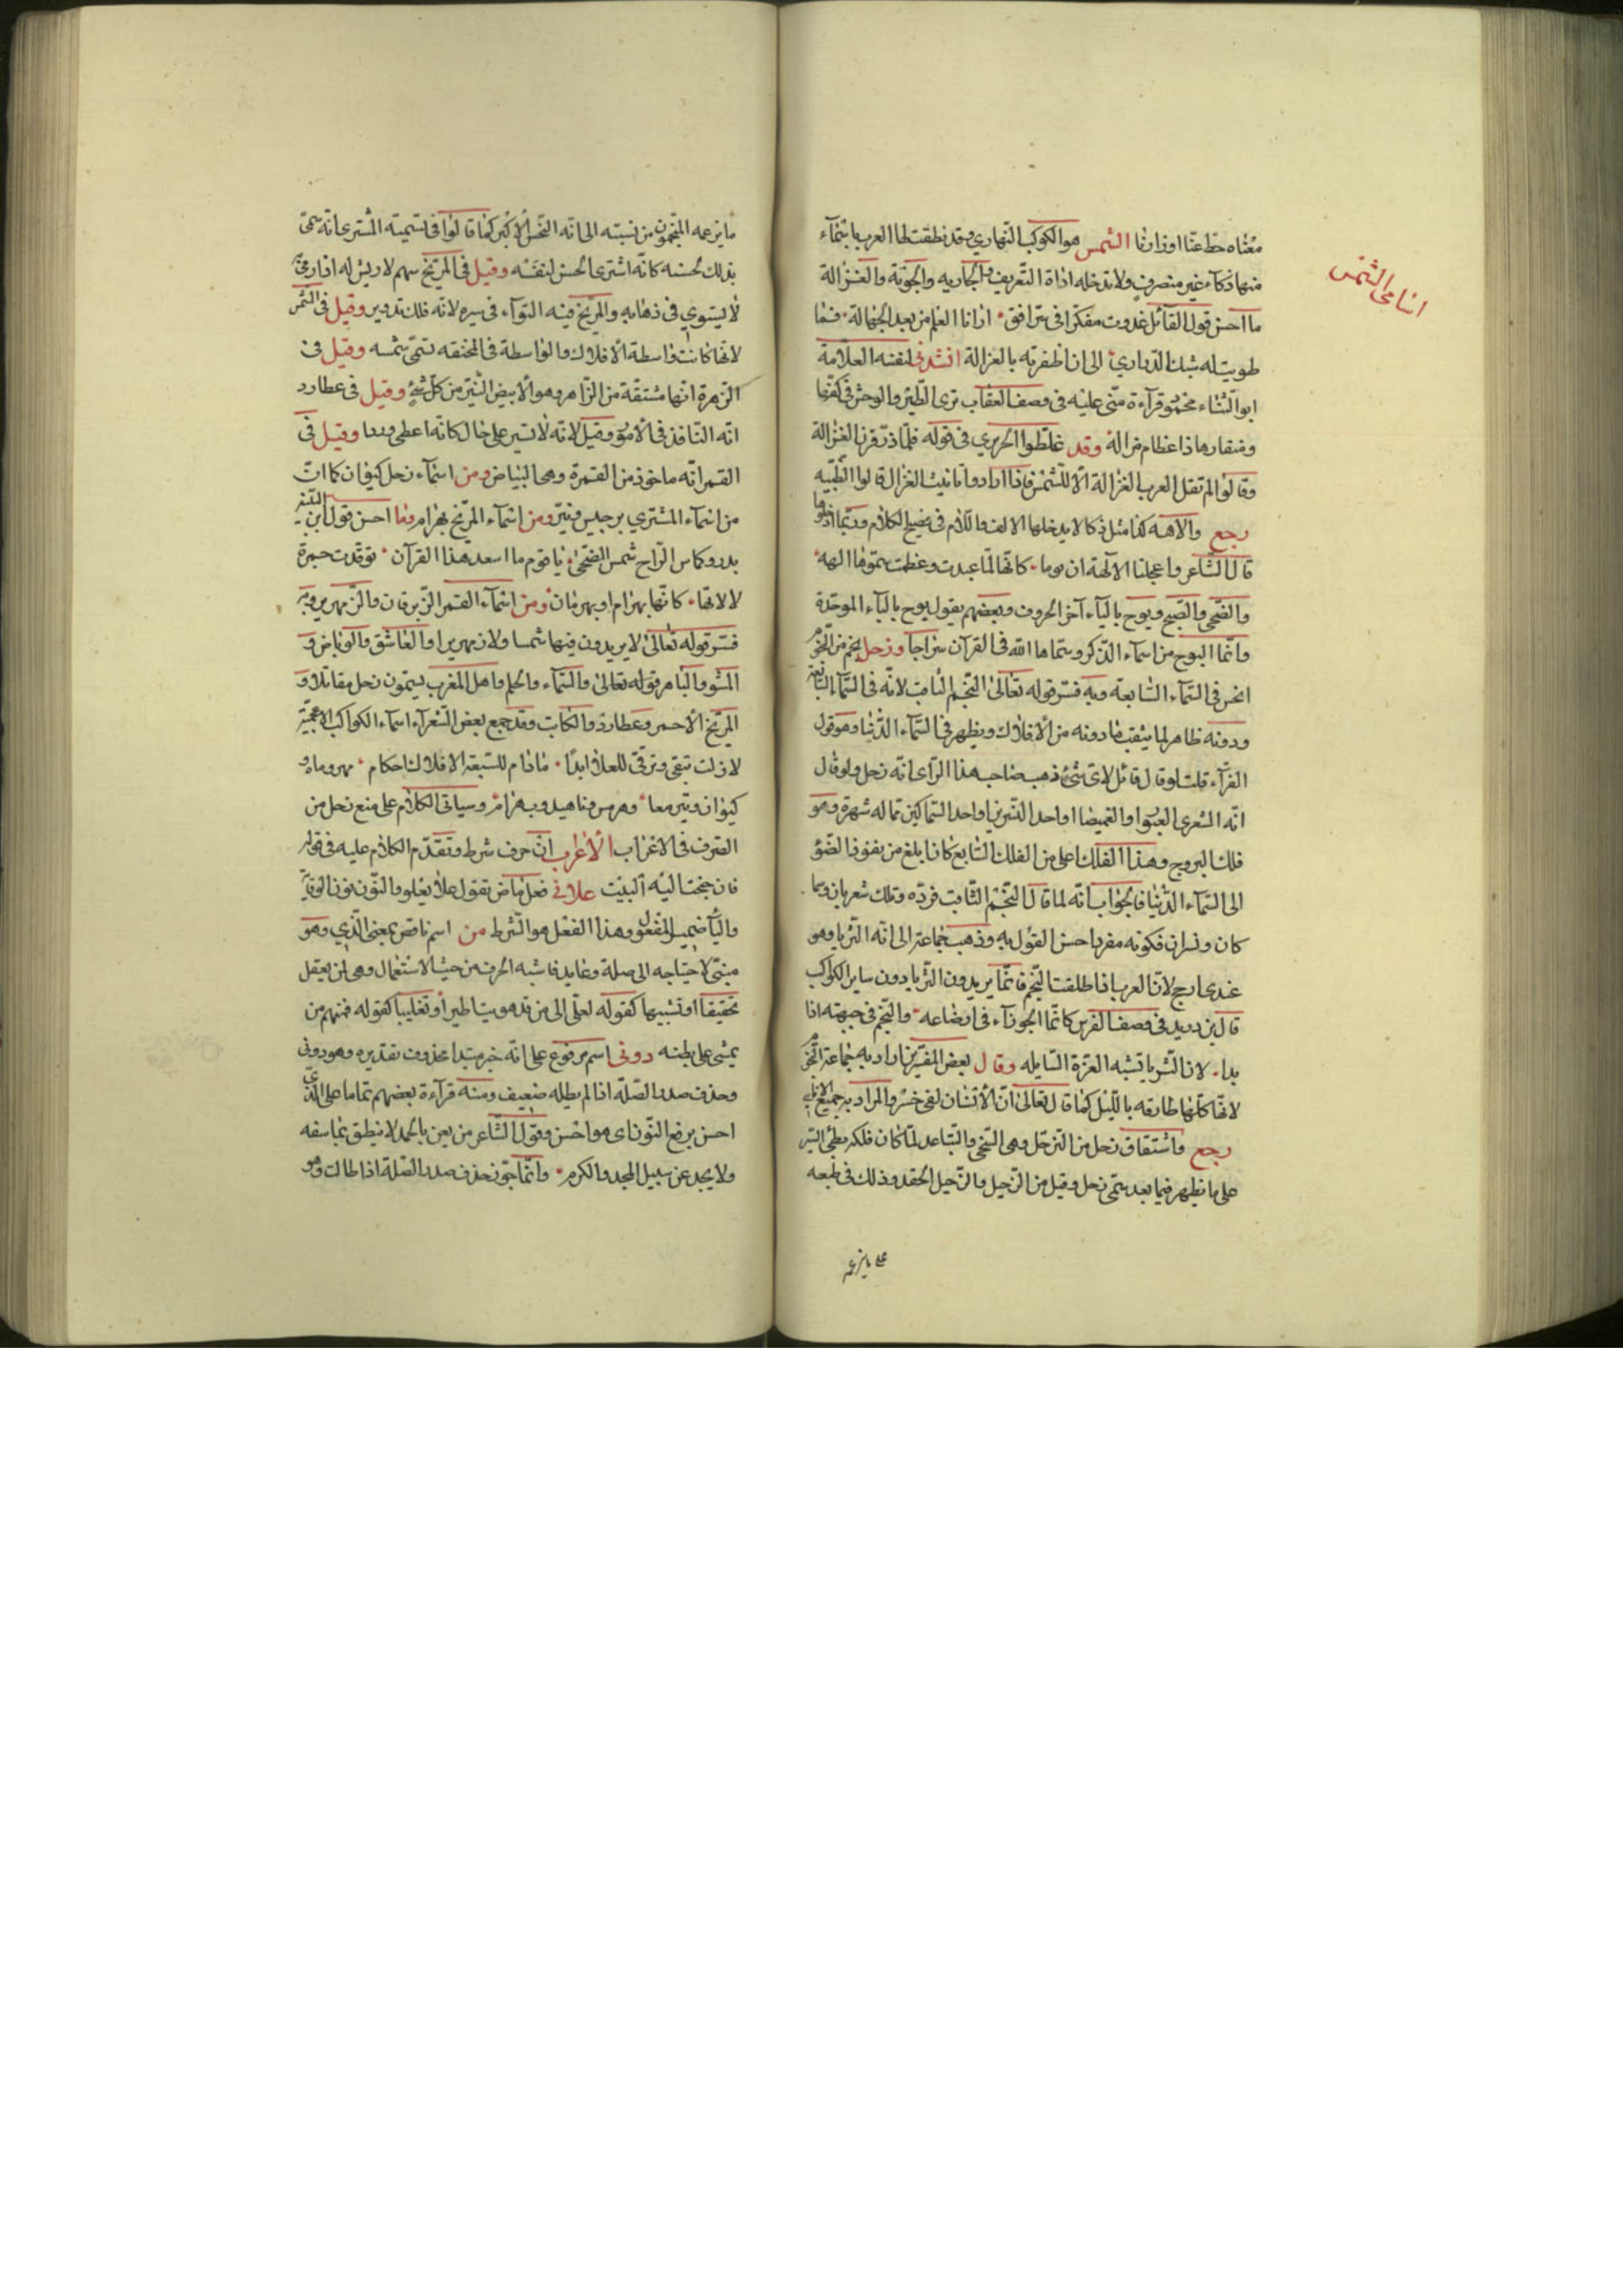 معناه حط عنا اوزارنا الشمس هو الكوكب النهاري وقد نطقت لها العرب باسمآء
اسامى الشمس
منها ذكآء غير منصرف ولا تدخله اداة التعريف والجاريه والجونة والغزالة
ما احسن قول القائل غدوت مفكرا فى سر افق ارانا العلم من بعد الجهالة فما
طويت له شبك الدراري الى ان اظفرته بالغزالة انشدنى لنفسه العلامة
ابو الثناء محمود قرآءة منى عليه فى وصف العقاب ترى الطير والوحش فى كفها
ومنقارها ذا عظام مزالة وقد غلطوا الحريري فى قوله فلما ذر قرن الغزالة
وقالوا لم تقل العرب الغزالة الا للشمس فاذا ارادوا تانيث الغزال قالوا الظبيه
رجع والاهه كذا مثل ذكا لا يدخلها الالف واللام فى فصيح الكلام وربما ادخلوها
قال الشاعر واعجلنا الالهة ان يوما كانها لما عبدت وعظمت سموها الهه
والضحى والصبح ويوح باليآء آخر الحروف وبعضهم يقول بوح بالبآء الموحدة
وانما اليوح من اسمآء الذكر وسماها الله فى القرآن سراجا وزحل نجم من النجوم
الخنس فى السمآء السابعة وبه فسر قوله تعالى النجم الثاقب لانه فى السمآء السابعة
ودونه ظاهر لما يثقب ما دونه من الافلاك ويظهر فى السمآء الدنيا وهو قول
الفرآء قلت لو قال قائل لاى شئ ذهب صاحب هذا الراى انه زحل ولو قال
انه الشعرى العبور او الغميصا او احد النسرين او احد السماكين مما له شهرة وهو
فلك البروج وهذا الفلك اعلى من الفلك السابع كان ابلغ من نفوذ الضوء
الى السمآء الدنيا فالجواب انه لما قال النجم الثاقب فرده وتلك شعريان وسما
كان ونسران فكونه مفردا حسن القول به وذهب جماعة الى انه الثريا وهو
عندى ارجح لان العرب اذا اطلقت النجم فانما يريدون الثريا دون ساير الكواكب
قال بن دريد فى وصف الفرس كانما الجوزآء فى ارضاعه والنجم فى جبهته اذا
بدا لان الثريا تشبه الغرة السايله وقال بعض المفسرين اراد به جماعة النجوم
لانها كلها طارقه بالليل كما قال تعالى ان الانسان لفى خسر والمراد به جميع الاناسى
رجع واشتقاق زحل من التزحل وهى التنحى والتباعد لما كان فلكه بطئ السير
على ما يظهر فيما بعد سمى زحل وقيل من الزحيل والزحيل الحقد وذلك فى طبعه
على ما يزعمه
ما يزعمه المنجمون من نسبته الى انه النحس الاكبر كما قالوا فى تسميته المشترى انه سمى
بذلك لحسنه كانه اشترى الحسن لنفسه وقيل فى المريخ سهم لا ريش له اذا رمى به
لا يستوي فى ذهابه والمريخ فيه التوآء فى سيره لانه فلك تدوير وقيل فى الشمس
لانها كانت واسطة الافلاك والواسطة فى المخنقه تسمى شمسه وقيل فى
الزهرة انها مشتقة من الزاهر وهو الابيض النير من كل شئ وقيل فى عطارد
انه النافذ فى الامور وقيل لانه لا تسير على حال كانه اعطى وردا وقيل فى
القمر انه ماخوذ من القمرة وهى البياض ومن اسمآء زحل كيوان كما ان
من اسمآء المشتري برجيس وتير ومن اسمآء المريخ بهرام وما احسن قول ابن النبيه
بدر وكاس الراح شمس الضحى يا قوم ما اسعد هذا القران توقدت حمرة
لالائها كانها بهرام او بهرمان ومن اسمآء القمر الزبرقان والزمهرير وبه
فسر قوله تعالى لا يريدون فيها شمسا ولا زمهريرا والغاسق والوباص و
الباهر قوله تعالى والسمآء والحلم واهل المغرب يسمون زحل مقاتلا و
المريخ الاحمر وعطارد والكاتب وقد جمع بعض الشعرآء اسمآء الكواكب الاعجمية
لا زلت تبقى وترقى للعلا ابدا ما دام للسبعة الافلاك احكام مهر وماه و
كيوان وتير معا وهرمس وناهيد وبهرام وسياتى الكلام على منع زحل من
الصرف فى الاعراب الاعراب ان حرف شرط وتقدم الكلام عليه فى قوله
فان جنحت اليه البيت علانى فعل ماض تقول علا يعلو والنون نون الوقاية
واليآ ضمير المفعول وهذا الفعل هو الشرط من اسم ناقص بمعنى الذي وهو
مبنى لاحتياجه الى صلة وعايد فاشبه الحرف من حيث الاستعمال وهى لمن يعقل
تحقيقا او تشبيها كقوله لعلى الى من قد هويت اطير او تغليبا كقوله فمنهم من
يمشى على بطنه دونى اسم مرفوع على انه خبر مبتدا محذوف تقديره وهو دونى
وحذف صدر الصلة اذا لم يطل ضعيف ومنه قرآءة بعضهم تماما على الذي
احسن برفع النون اى هو احسن وقول الشاعر من يعن بالحمد لا ينطق بما سفه
ولا يحد عن سبيل المجد والكرم وانما جوز حذف صدر الصلة اذا طالت وهو